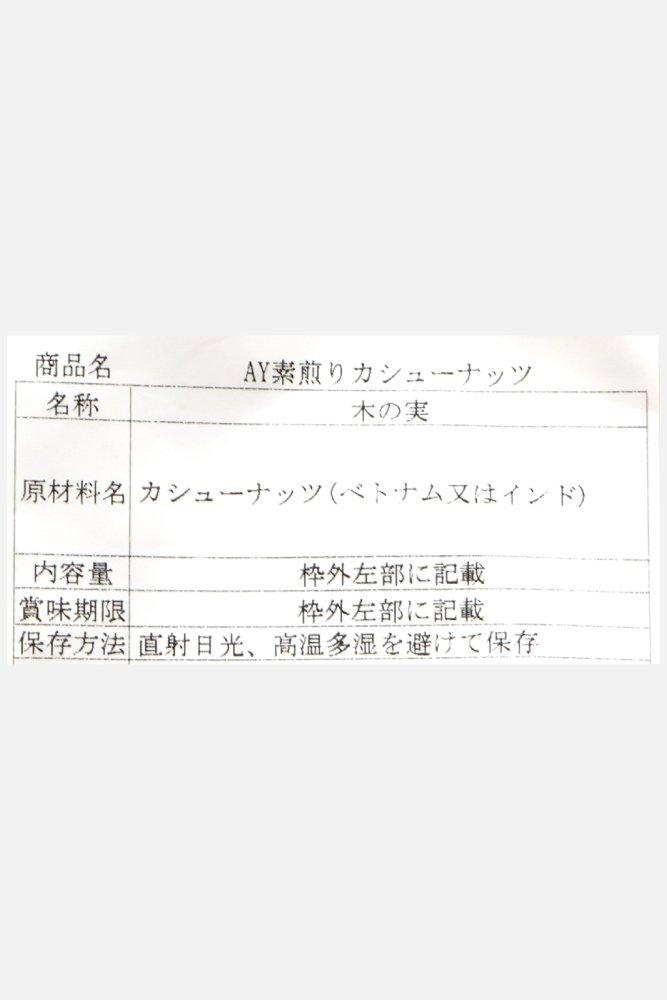 商品名 AY素煎りカシューナッツ
名称 木の実
原材料名 カシューナッツ(ベトナム又はインド)
内容量 枠外左部に記載
賞味期限 枠外左部に記載
保存方法 直射日光、高温多湿を避けて保存